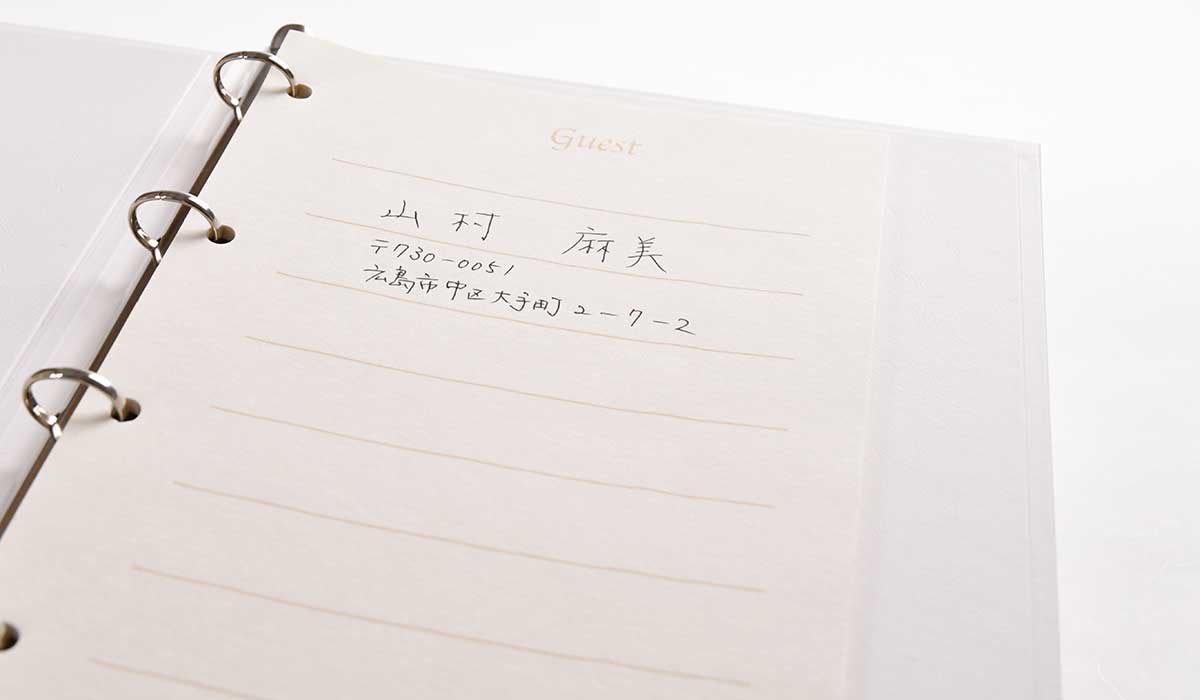 Guest
山村 麻美
〒730-0051
広島市中区大手町2-7-2